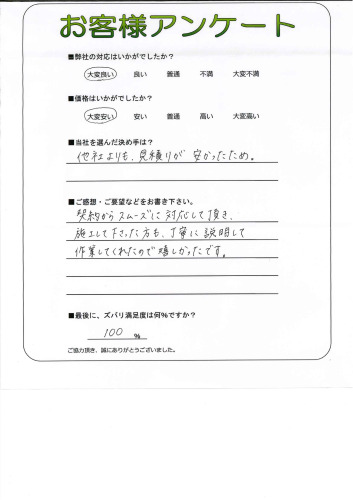 お客様アンケート
■弊社の対応はいかがでしたか？
大変良い 良い 普通 不満 大変不満
■価格はいかがでしたか？
大変安い 安い 普通 高い 大変高い
■当社を選んだ決め手は？
他社よりも、見積りが安かったため。
■ご感想・ご要望などをお書き下さい。
契約からスムーズに対応して頂き、
施工して下さった方も、丁寧に説明して
作業してくれたので嬉しかったです。
■最後に、ズバリ満足度は何%ですか？
100 %
ご協力頂き、誠にありがとうございました。